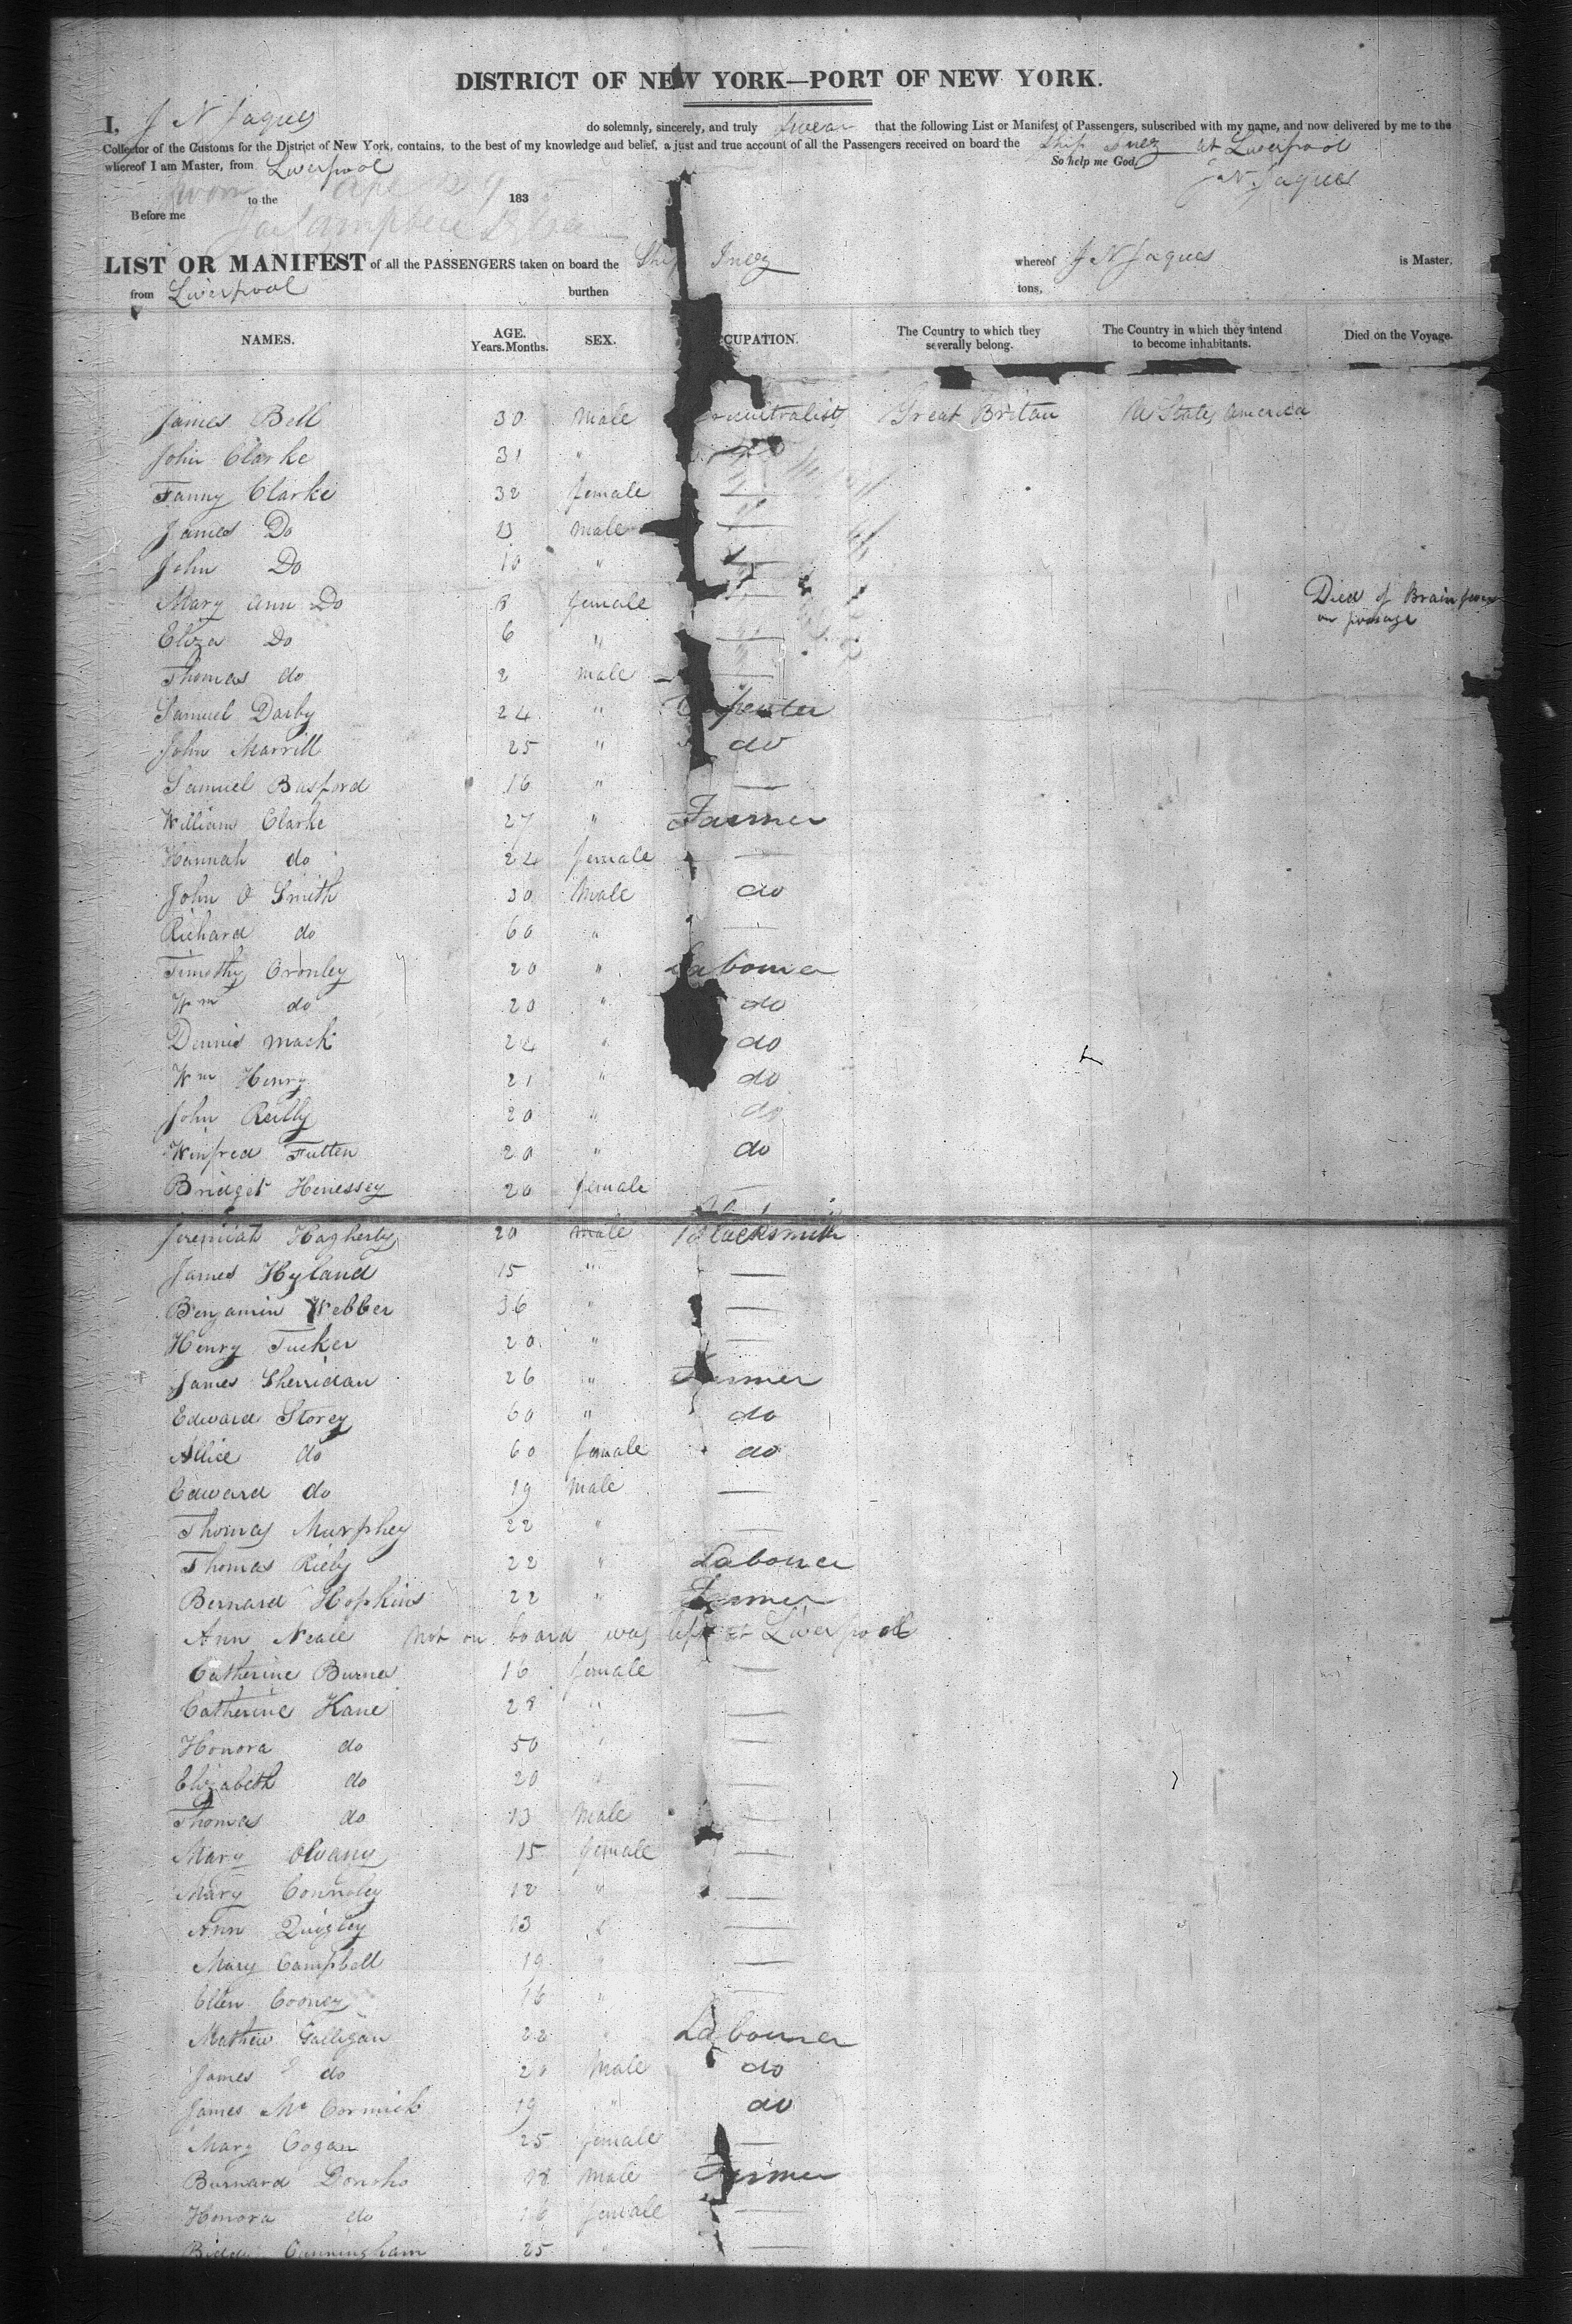 DISTRICT OF NEW YORK—PORT OF NEW YORK.
I, J N Jaques do solemnly, sincerely, and truly swear that the following List or Manifest of Passengers, subscribed with my name, and now delivered by me to the
Collector of the Customs for the District of New York, contains, to the best of my knowledge and belief, a just and true account of all the Passengers received on board the Ship Inez at Liverpool
whereof I am Master, from Liverpool So help me God.
J N. Jaques
Sworn to the 183
Before me
LIST OR MANIFEST of all the PASSENGERS taken on board the Ship Inez whereof J N Jaques is Master,
from Liverpool burthen tons,
NAMES. AGE. Years. Months. SEX. CUPATION. The Country to which they severally belong. The Country in which they intend to become inhabitants. Died on the Voyage.
James Bell 30 male Great Britan States America
John Clarke 31 "
Fanny Clarke 32 female —
James Do 13 male —
John Do 10 " —
Mary Ann Do 8 female — Died of Brain fever
on passage
Eliza Do 6 " —
Thomas do 2 male —
Samuel Darby 24 " Carpenter
John Marrill 25 " do
Samuel Basford 16 " —
William Clarke 27 " Farmer
Hannah do 24 female —
John O Smith 30 Male do
Richard do 60 " —
Timothy Cronley 20 " Labourer
Wm do 20 " do
Dennis Mack 24 " do
Wm Henry 21 " do
John Reilly 20 " do
Winfred Futten 20 " do
Bridget Henessey 20 female —
Jeremiah Hagherty 20 male Blacksmith
James Hyland 15 " —
Benjamin Webber 36 " —
Henry Tucker 20 " —
James Sherridan 26 " Farmer
Edward Storey 60 " do
Allice do 60 female do
Edward do 19 Male —
Thomas Murphey 22 " —
Thomas Riely 22 " Labourer
Bernard Hopkins 22 " Farmer
Ann Neale Not on board was left at Liverpool
Catherine Burne 16 female —
Catherine Kane 28 " —
Honora do 50 " —
Elizabeth do 20 " —
Thomas do 13 Male —
Mary Olvany 15 female —
Mary Connoley 12 " —
Ann Quigley 13 " —
Mary Campbell 19 " —
Ellen Cooney 16 " —
Mathew Galligan 22 " Labourer
James do 20 Male do
James Mc Cormick 19 " do
Mary Cogan 25 female —
Burnard Donoho 18 Male Farmer
Honora do 16 female —
Biddy Cunningham 25 " —